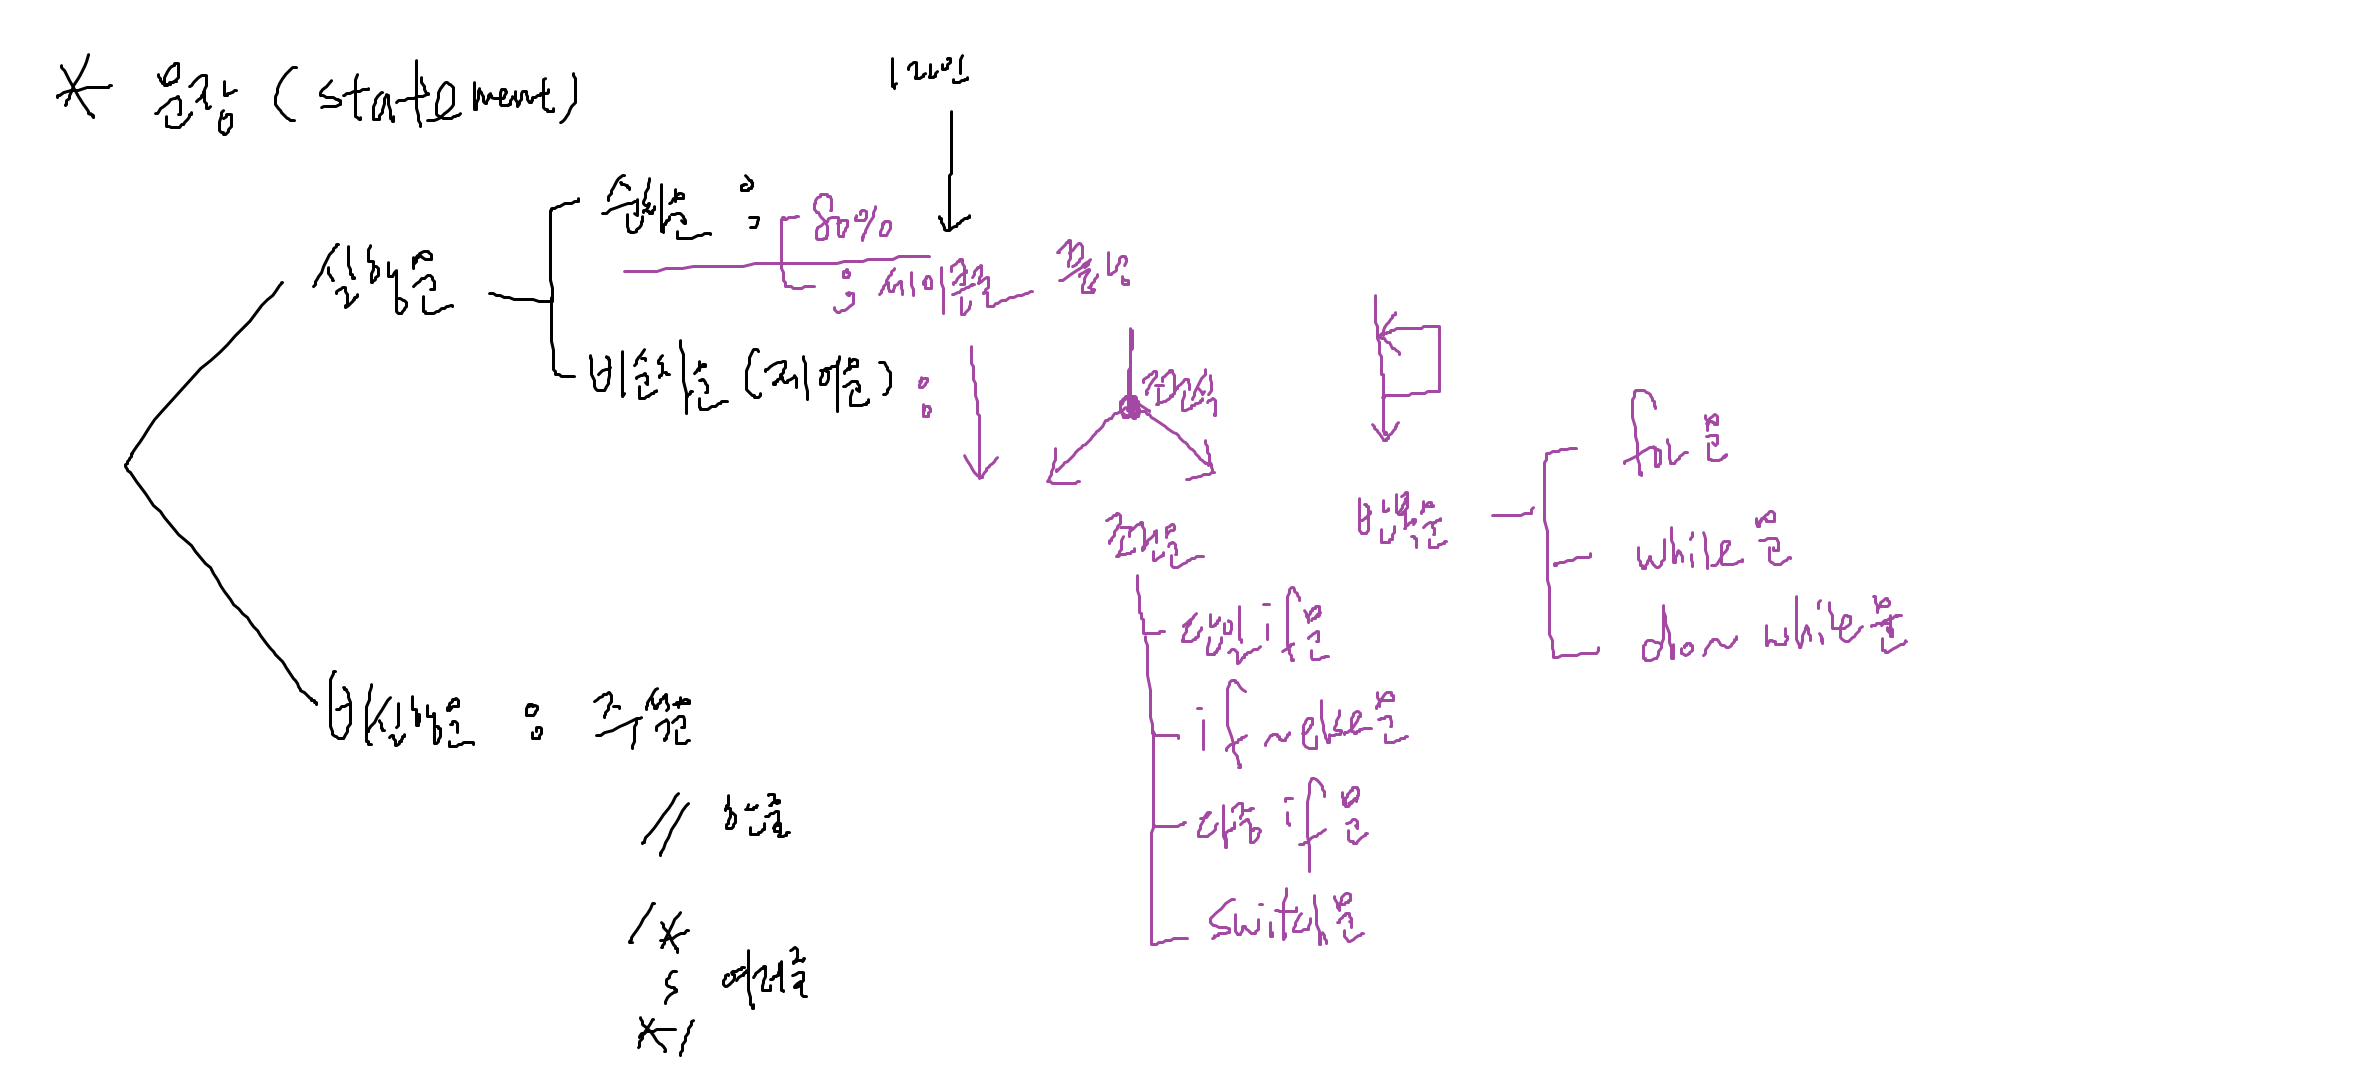 * 문장 (statement)
1라인
순차문 :
80%
; 세미콜론 끝남
실행문
비순차문 (제어문) :
조건식
조건문
단일 if문
if~else문
다중 if문
switch문
반복문
for문
while문
do~while문
비실행문 : 주석문
// 한줄
/*
여러줄
*/